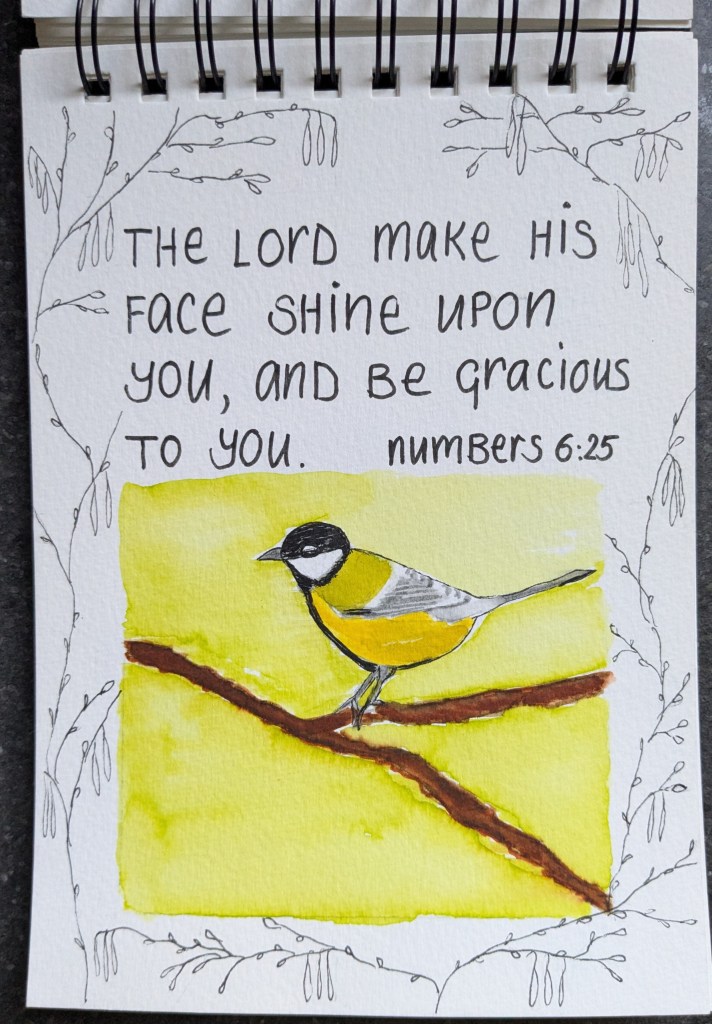 THe LOrD make His
Face SHine upon
you, anD Be gracious
TO you. numBers 6:25